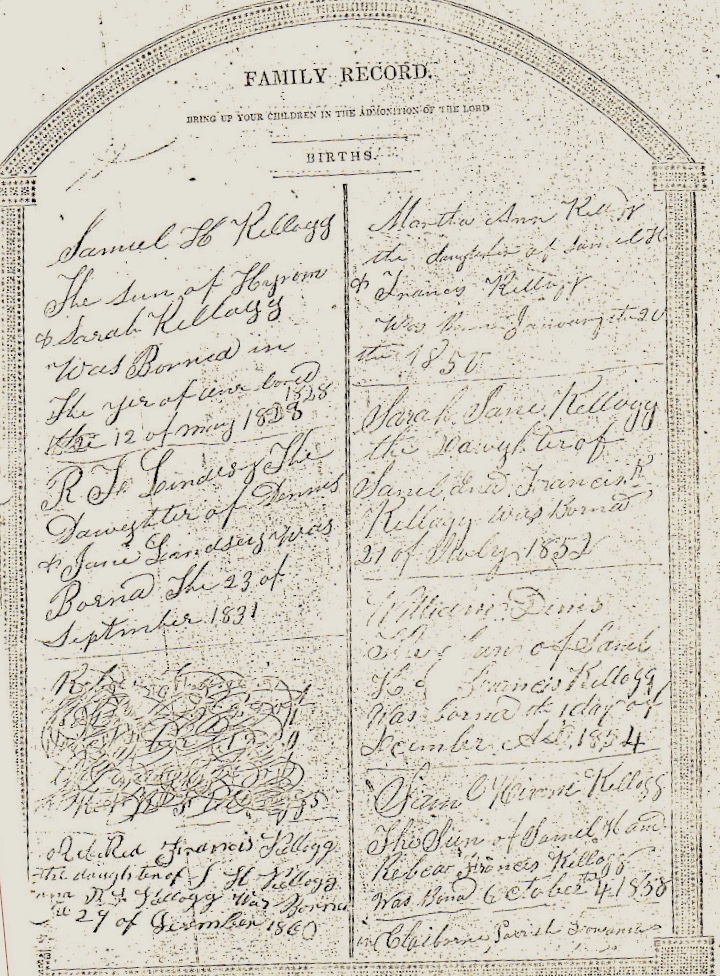 FAMILY RECORD.
BRING UP YOUR CHILDREN IN THE ADMONITION OF THE LORD
BIRTHS.
Samuel H Kellogg
The Sun of Hyrom
& Sarah Kellogg
Was Borned in
The yer of our lord
1828
the 12 of may 1828
R F Lindesy The
Dawghter of Dennis
& Jane Lindsey was
Borned The 23 of
September 1831
Rebeca Francis Kellogg
the daughter of S H Kellogg
R F Kellogg Was Borned
29 of Dcember 1860
Martha Ann Kellogg
the daughter of Samuel H
& Francis Kellogg
Was Born January 20
the 1850
Sarah Jane Kellogg
the Dawghter of
Samel and Francis
Kellogg was Borned
21 of July 1852
William Denis
The Sun of Saml
H & Francis Kellogg
Was borned the 1 day of
Dcember 1854
Sam Hirom Kellogg
The Sun of Samel H and
Rebeca Francis Kellogg
Was Bornd October 4 1858
in Claiborne Parish Louisiana